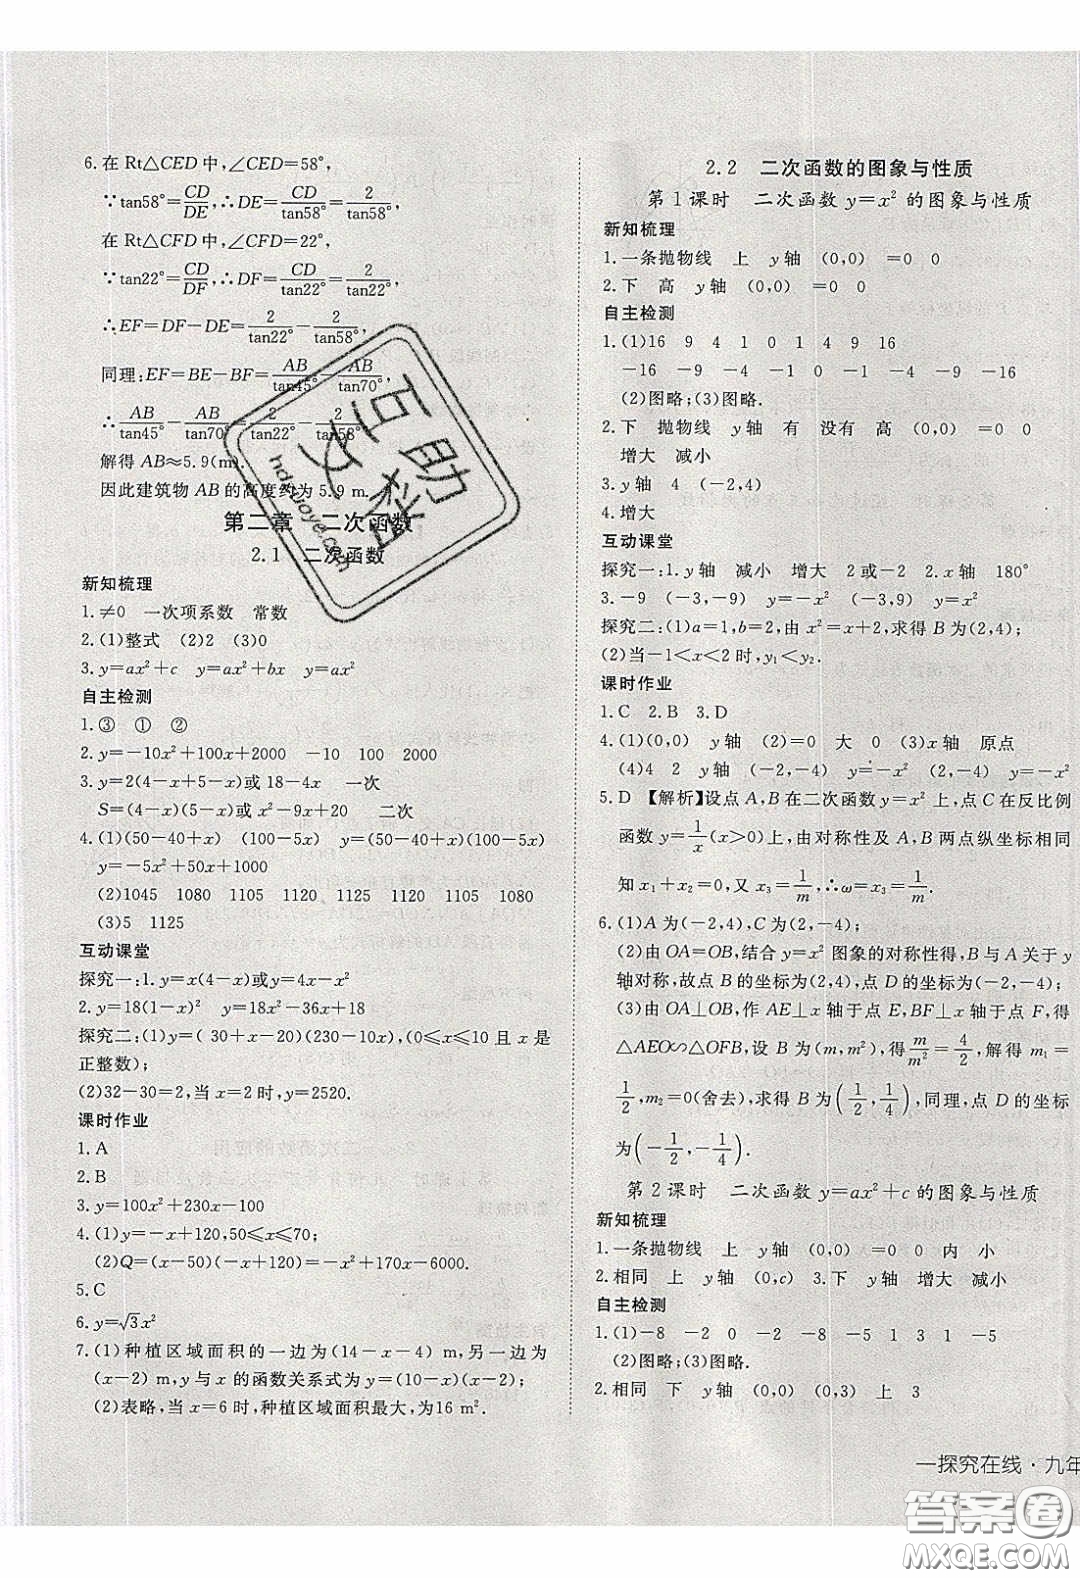 6. 在 Rt△CED 中,∠CED=58°,
∵tan58°=CD/DE,∴DE=CD/tan58°=2/tan58°,
在 Rt△CFD 中,∠CFD=22°,
∵tan22°=CD/DF,∴DF=CD/tan22°=2/tan22°,
∴EF=DF-DE=2/tan22°-2/tan58°,
同理:EF=BE-BF=AB/tan45°-AB/tan70°,
∴AB/tan45°-AB/tan70°=2/tan22°-2/tan58°,
解得 AB≈5.9(m).
因此建筑物 AB 的高度约为 5.9 m.
第二章 二次函数
2.1 二次函数
新知梳理
1. ≠0 一次项系数 常数
2. (1)整式 (2)2 (3)0
3. y=ax²+c y=ax²+bx y=ax²
自主检测
1. ③ ① ②
2. y=-10x²+100x+2000 -10 100 2000
3. y=2(4-x+5-x)或 18-4x 一次
S=(4-x)(5-x)或 x²-9x+20 二次
4. (1)(50-40+x) (100-5x) y=(50-40+x)(100-5x)
y=-5x²+50x+1000
(2)1045 1080 1105 1120 1125 1120 1105 1080
(3)5 1125
互动课堂
探究一:1. y=x(4-x)或y=4x-x²
2. y=18(1-x)² y=18x²-36x+18
探究二:(1)y=( 30+x-20)(230-10x),(0≤x≤10 且 x 是
正整数);
(2)32-30=2,当 x=2 时,y=2520.
课时作业
1. A
2. B
3. y=100x²+230x-100
4. (1)y=-x+120,50≤x≤70;
(2)Q=(x-50)(-x+120)=-x²+170x-6000.
5. C
6. y=√3x²
7. (1)种植区域面积的一边为(14-x-4) m,另一边为
(x-2) m,y 与 x 的函数关系式为y=(10-x)(x-2);
(2)表略,当 x=6 时,种植区域面积最大,为16 m².
2.2 二次函数的图象与性质
第 1 课时 二次函数 y=x² 的图象与性质
新知梳理
1. 一条抛物线 上 y 轴 (0,0) =0 0
2. 下 高 y 轴 (0,0) =0 0
自主检测
1. (1)16 9 4 1 0 1 4 9 16
-16 -9 -4 -1 0 -1 -4 -9 -16
(2)图略;(3)图略.
2. 下 抛物线 y 轴 有 没有 高 (0,0) =0 0
增大 减小
3. y 轴 4 (-2,4)
4. 增大
互动课堂
探究一:1. y 轴 减小 增大 2 或-2 2. x 轴 180°
3. -9 (-3,-9) y=-x² (-3,9) y=x²
探究二:(1)a=1,b=2,由 x²=x+2,求得 B 为(2,4);
(2)当-1<x<2 时,y₁<y₂.
课时作业
1. C 2. B 3. D
4. (1)(0,0) y 轴 (2)=0 大 0 (3)x 轴 原点
(4)4 2 y 轴 (-2,-4) y=-x² (2,-4) y=-x²
5. D 【解析】设点 A,B 在二次函数 y=x² 上,点 C 在反比例
函数 y=1/x(x>0)上,由对称性及 A,B 两点纵坐标相同
知 x₁+x₂=0,又 x₃=1/m,∴ω=x₃=1/m.
6. (1)A 为(-2,4),C 为(2,-4);
(2)由 OA=OB,结合 y=x² 图象的对称性得,B 与 A 关于 y
轴对称,故点 B 的坐标为(2,4),点 D 的坐标为(-2,-4);
(3)由 OA⊥OB,作 AE⊥x 轴于点 E,BF⊥x 轴于点 F,得
△AEO∽△OFB,设 B 为(m,m²),得m/m²=4/2,解得 m₁=
1/2,m₂=0(舍去),求得 B 为(1/2,1/4),同理,点 D 的坐标
为(-1/2,-1/4);
第 2 课时 二次函数 y=ax²+c 的图象与性质
新知梳理
1. 一条抛物线 上 y 轴 (0,0) =0 0 内 小
2. 相同 上 y 轴 (0,c) 3. 下 y 轴 增大 减小
自主检测
1. (1)-8 -2 0 -2 -8 -5 1 3 1 -5
(2)图略;(3)图略.
2. 相同 下 y 轴 (0,0) (0,3) 上 3
一探究在线·九年
互助文档
hdhuoye.com
答案圈
MXQE.COM